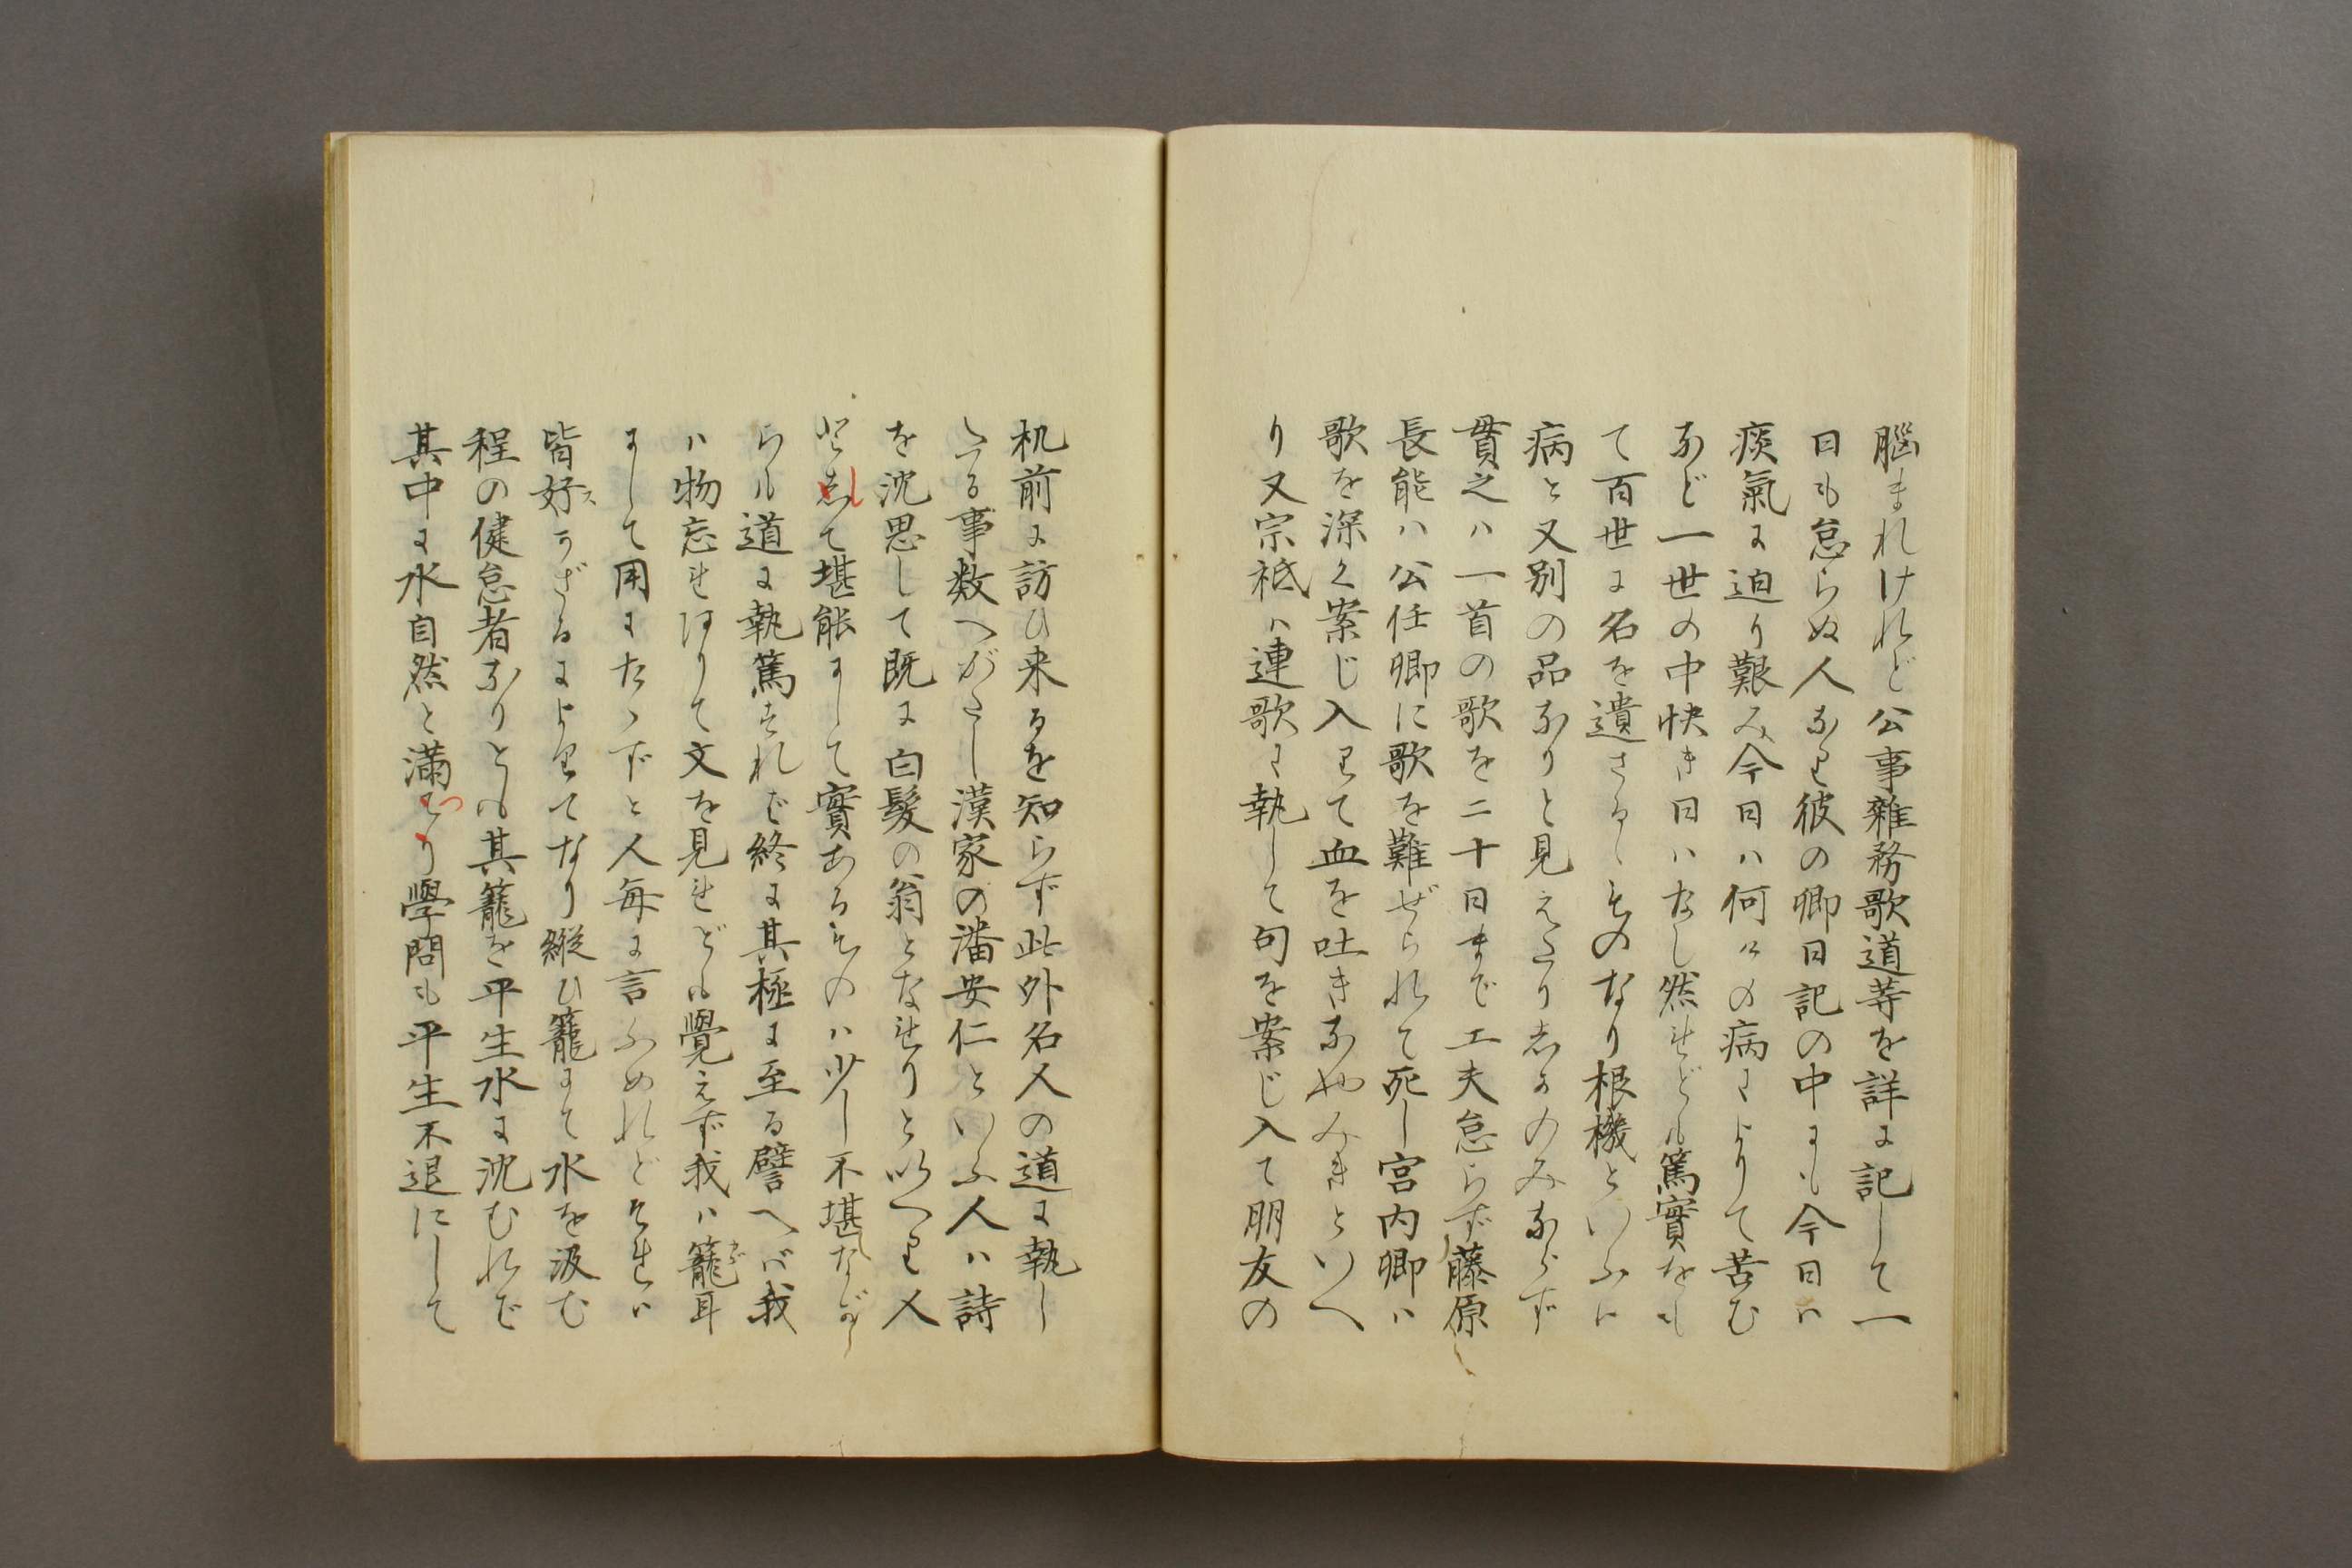 腦まれけれど公事雜務歌道等を詳に記して一
日も怠らぬ人なり彼の卿日記の中にも今日ハ
痰氣に迫り艱み今日ハ何々の病によりて苦む
など一世の中快き日ハなし然れども篤實をも
て百世に名を遺さるゝものなり根機といふハ
病と又別の品なりと見えたりしかのみならず
貫之ハ一首の歌を二十日まで工夫怠らず藤原
長能ハ公任卿に歌を難ぜられて死し宮内卿ハ
歌を深く案じ入りて血を吐きなやみきといへ
り又宗祗ハ連歌に執して句を案じ入て朋友の
机前に訪ひ来るを知らず此外名人の道に執し
たる事数へがたし漢家の潘安仁といふ人ハ詩
を沈思して既に白髮の翁となせりと以へり人
として堪能にして實あるものハ少し不堪ながら
らも道に執篤けれバ終に其極に至る譬へバ我
ハ物忘せはりて文を見れども覺えず我ハ籠耳
にして用にたゝずと人毎に言ふめれどそれハ
皆好かざるによりてなり縱ひ籠にて水を汲む
程の健怠者なりとも其籠を平生水に沈むれバ
其中に水自然と滿てり學問も平生不退にして